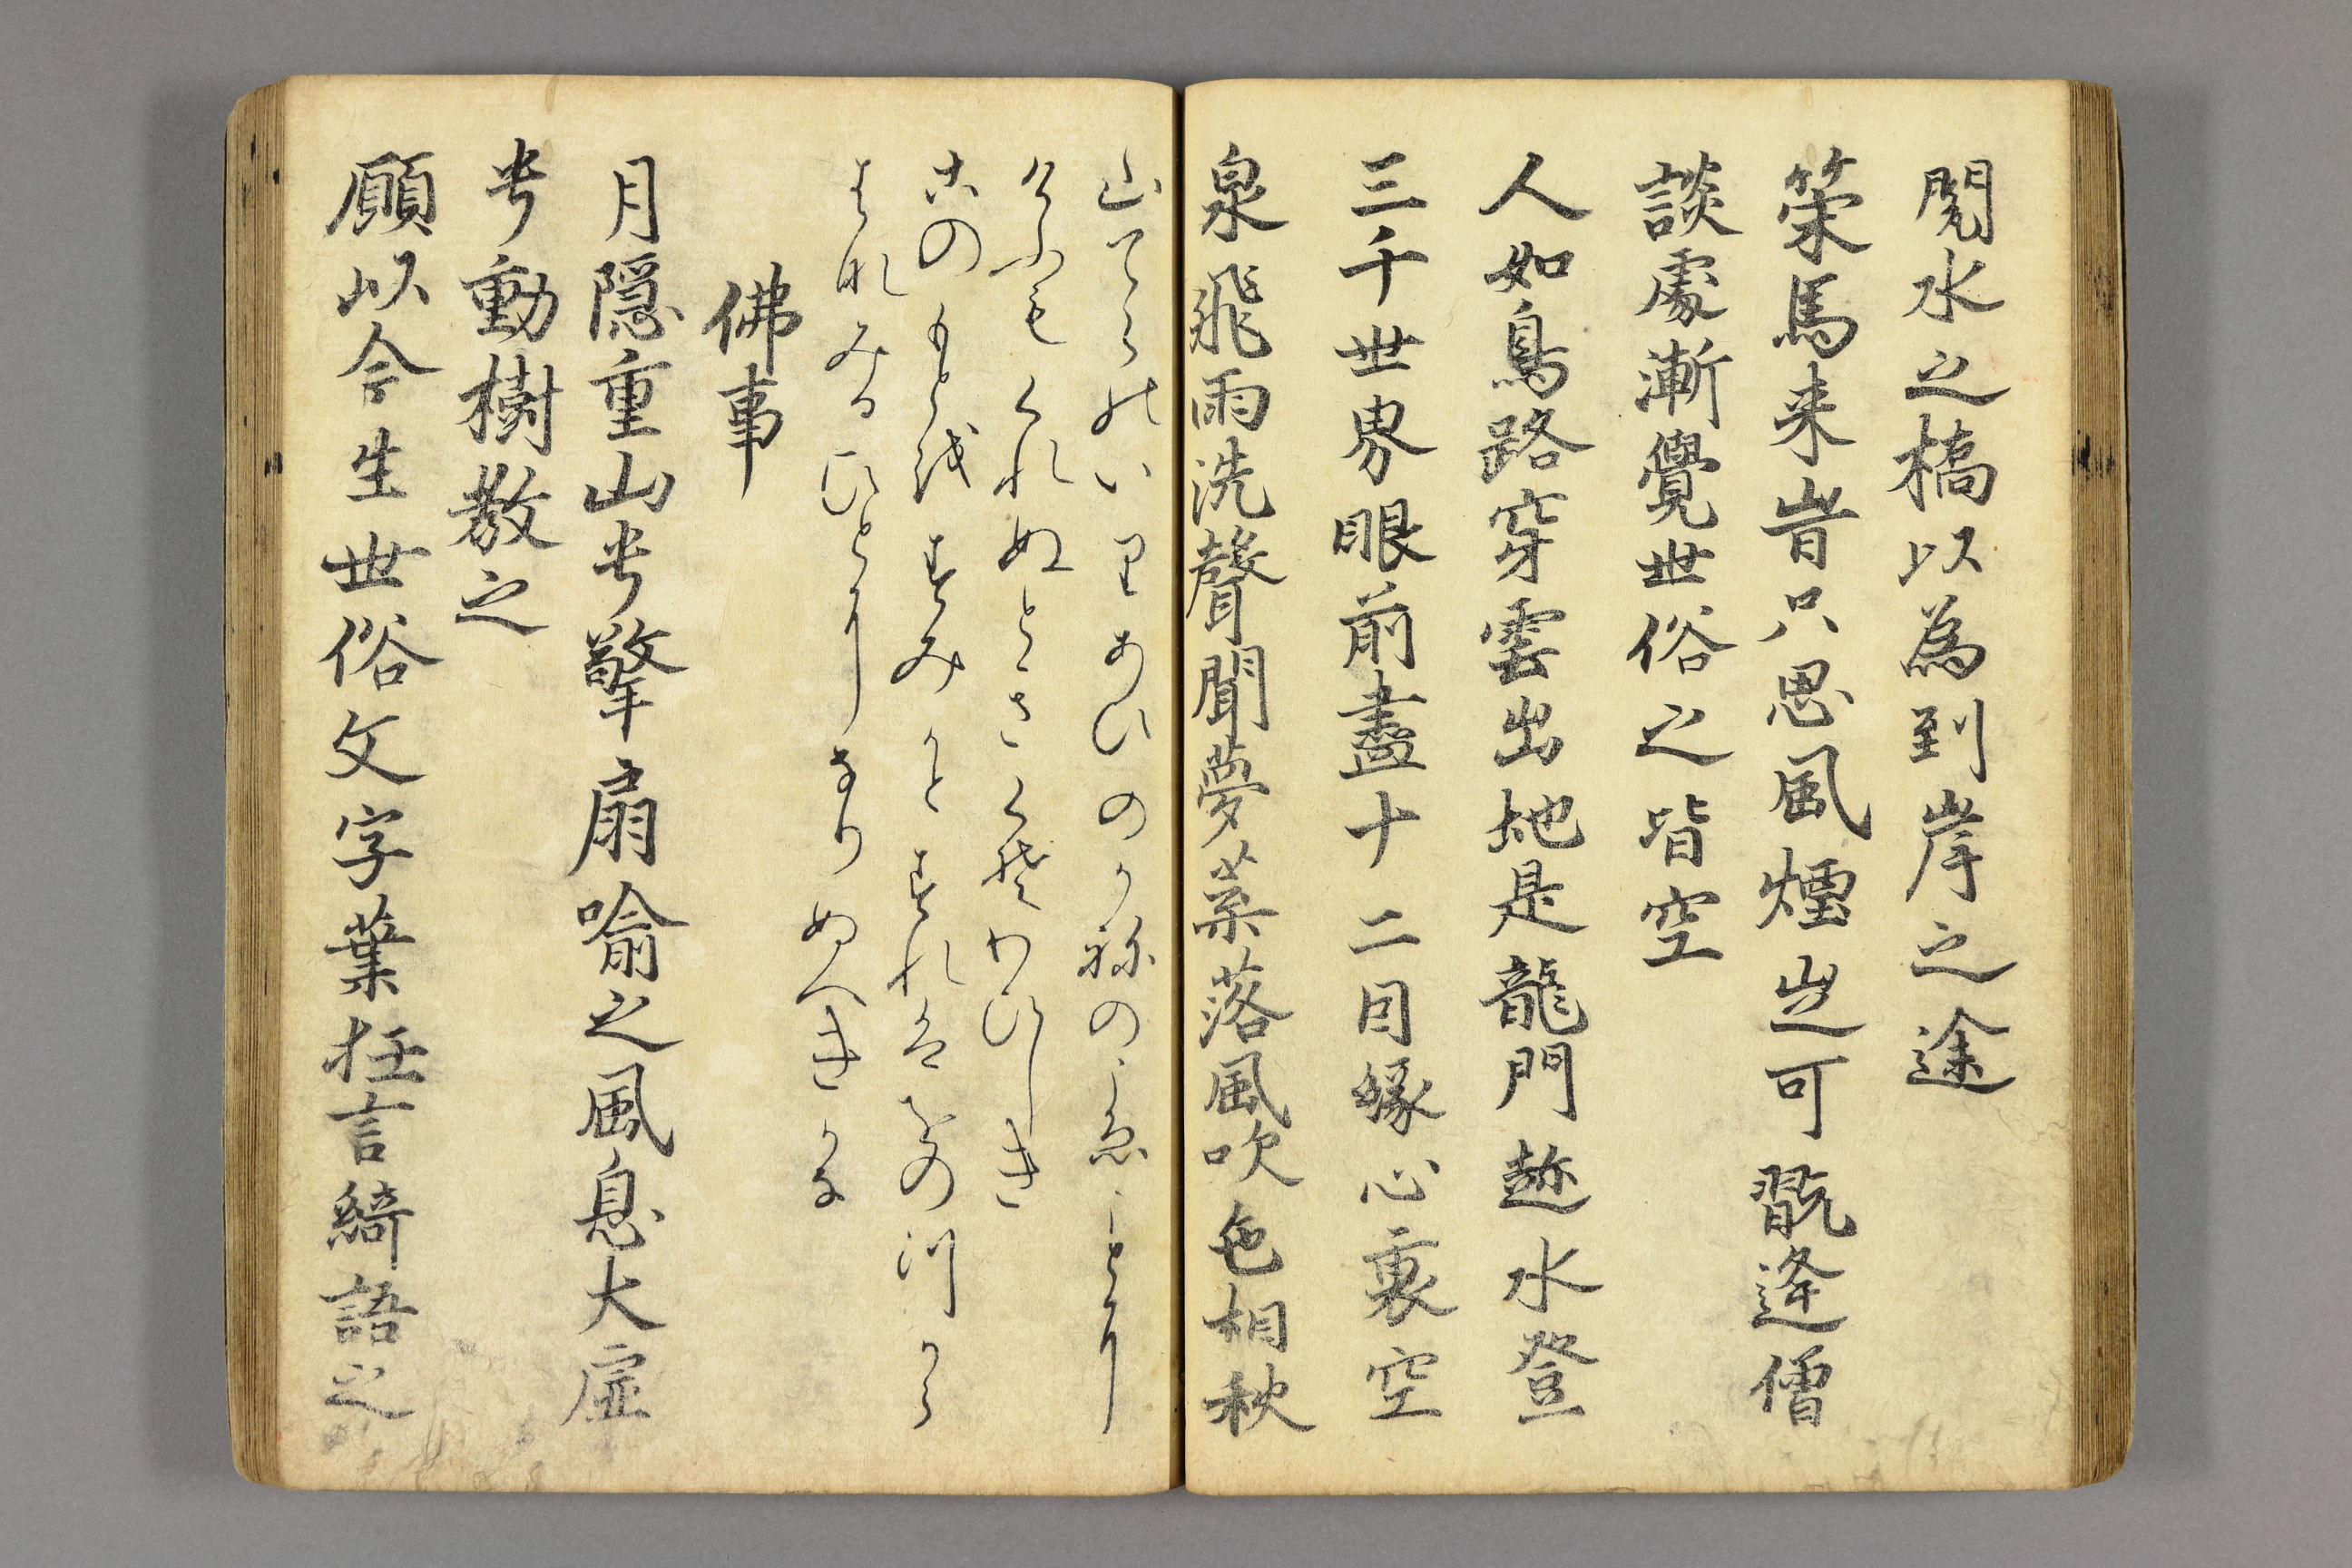 閲水之橋以為到岸之途
策馬来時只思風煙之可翫逢僧
談處漸覺世俗之皆空
人如鳥路穿雲出地是龍門趁水登
三千世界眼前盡十二因縁心裏空
泉飛雨洗聲聞夢葉落風吹色相秋
山てらのいりあひのかねのこゑことに
けふもくれぬときくそかなしき
このもとをすみかとすれはをのつから
はなみるひとゝなりぬへきかな
佛事
月隠重山兮擎扇喩之風息大虚
兮動樹教之
願以今生世俗文字業狂言綺語之